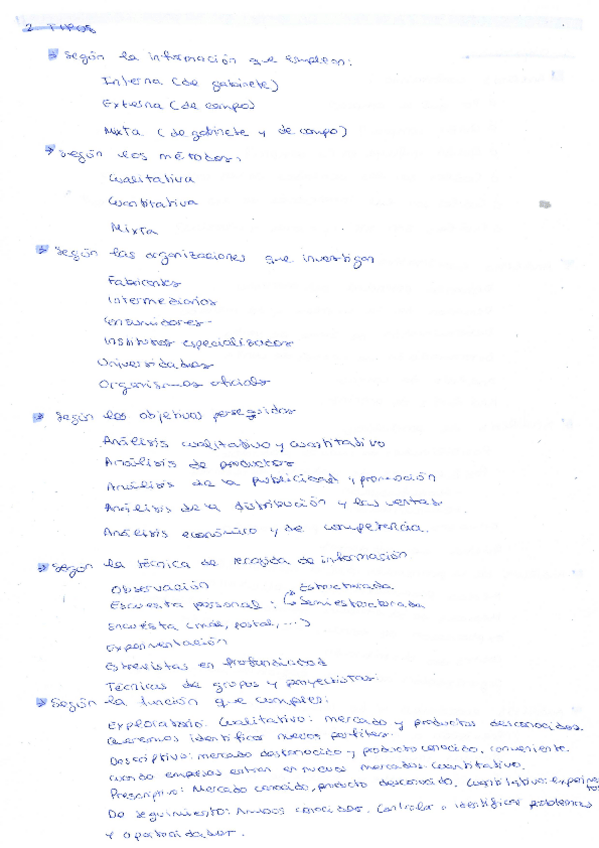 2. TIPOS
Según la información que emplean:
Interna (de gabinete)
Externa (de campo)
Mixta (de gabinete y de campo)
Según los métodos:
Cualitativa
Cuantitativa
Mixta
Según las organizaciones que investigan
Fabricantes
Intermediarios
Consumidores
Institutos especializados
Universidades
Organismos oficiales
Según los objetivos perseguidos
Análisis cualitativo y cuantitativo
Análisis de productos
Análisis de la publicidad y promoción
Análisis de la distribución y las ventas.
Análisis económico y de competencia.
Según la técnica de recogida de información
Observación
Encuesta personal: Estructurada
Semiestructurada
Encuesta (mail, postal, ...)
Experimentación
Entrevistas en profundidad
Técnicas de grupos y proyectivas.
Según la función que cumplen:
Exploratorio: Cualitativo: mercado y productos desconocidos.
Queremos identificar nuevos perfiles.
Descriptivo: mercado desconocido y producto conocido, conveniente.
cuando empresas entran en nuevos mercados. Cuantitativo.
Prescriptivo: Mercado conocido, producto desconocido. Cuantitativo:
De seguimiento: Ambos conocidos. Controlar e identificar problemas
y oportunidades.